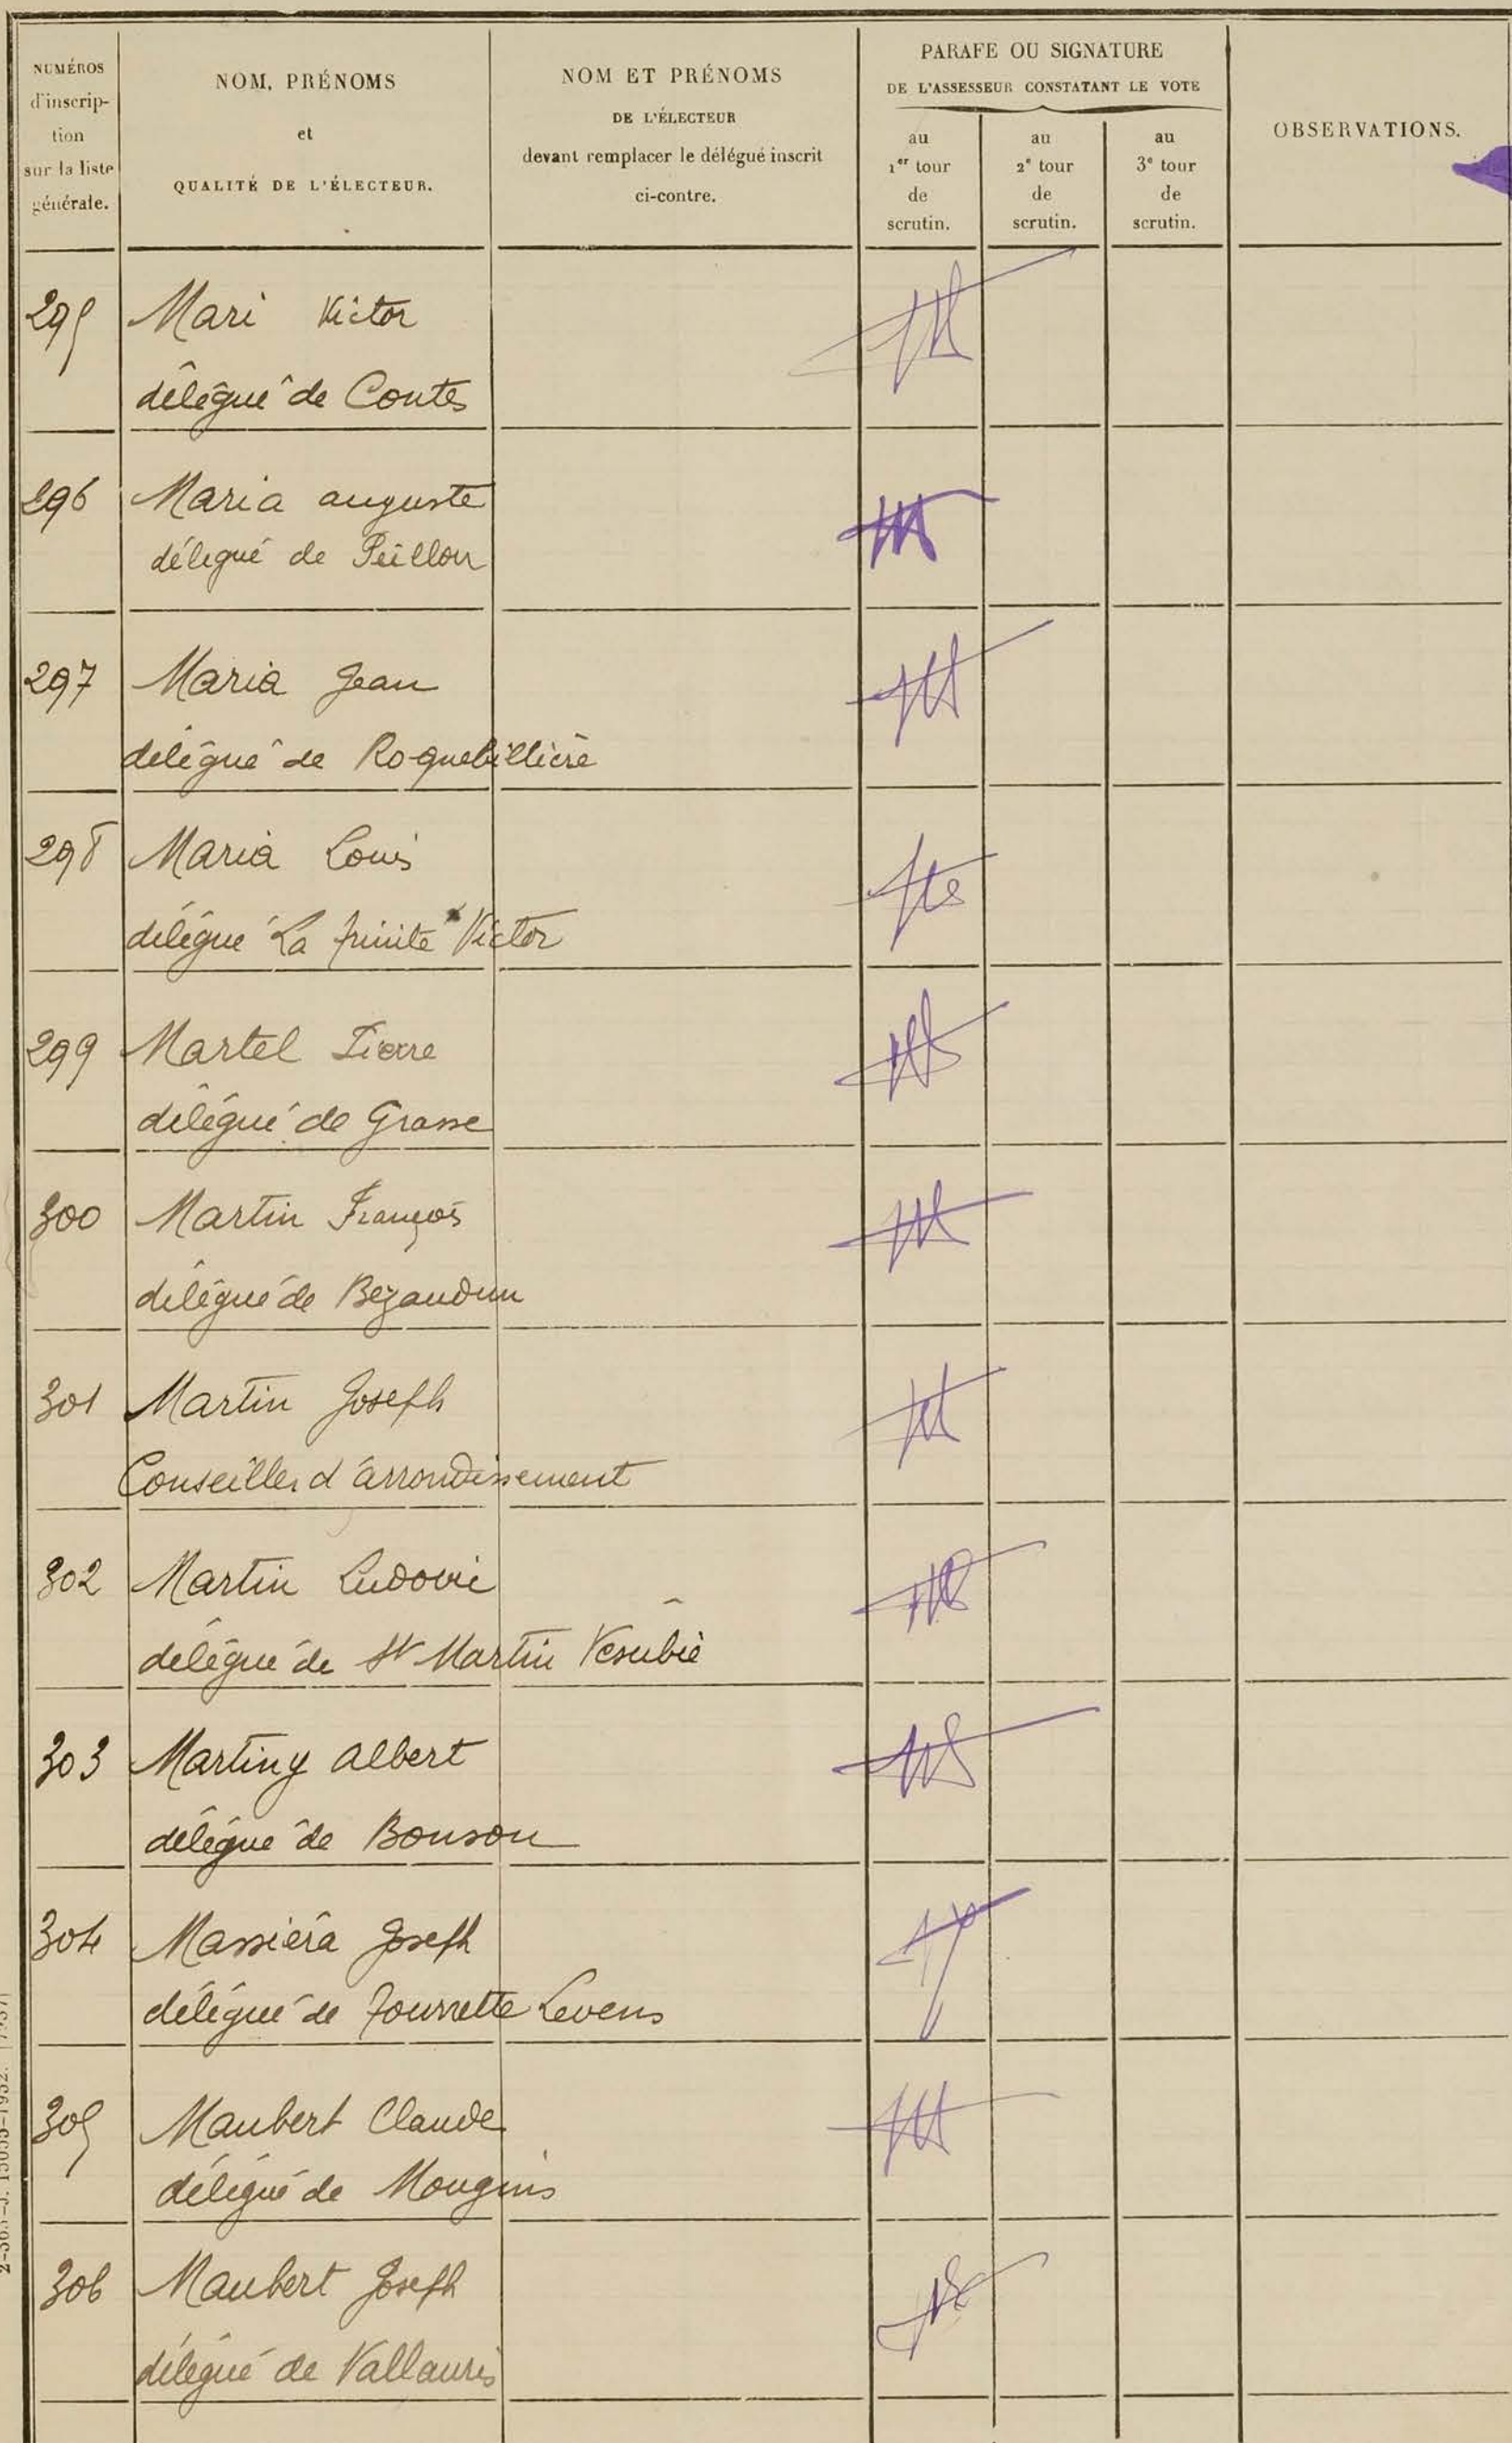 NUMÉROS
d'inscrip-
tion
sur la liste
générale.
NOM, PRÉNOMS
et
QUALITÉ DE L'ÉLECTEUR.
NOM ET PRÉNOMS
DE L'ÉLECTEUR
devant remplacer le délégué inscrit
ci-contre.
PARAFE OU SIGNATURE
DE L'ASSESSEUR CONSTATANT LE VOTE
au
1er tour
de
scrutin.
au
2e tour
de
scrutin.
au
3e tour
de
scrutin.
OBSERVATIONS.
295 Mari Victor
délégué de Contes
296 Maria auguste
délégué de Peillon
297 Maria Jean
délégué de Roquebillière
298 Maria Louis
délégué La Trinité Victor
299 Martel Pierre
délégué de Grasse
300 Martin François
délégué de Bezaudun
301 Martin Joseph
Conseiller d'arrondissement
302 Martin Ludovic
délégué de St Martin Vésubie
303 Martiny albert
délégué de Bonson
304 Massiéra Joseph
délégué de Tourrette Levens
305 Maubert Claude
délégué de Mougins
306 Maubert Joseph
délégué de Vallauris